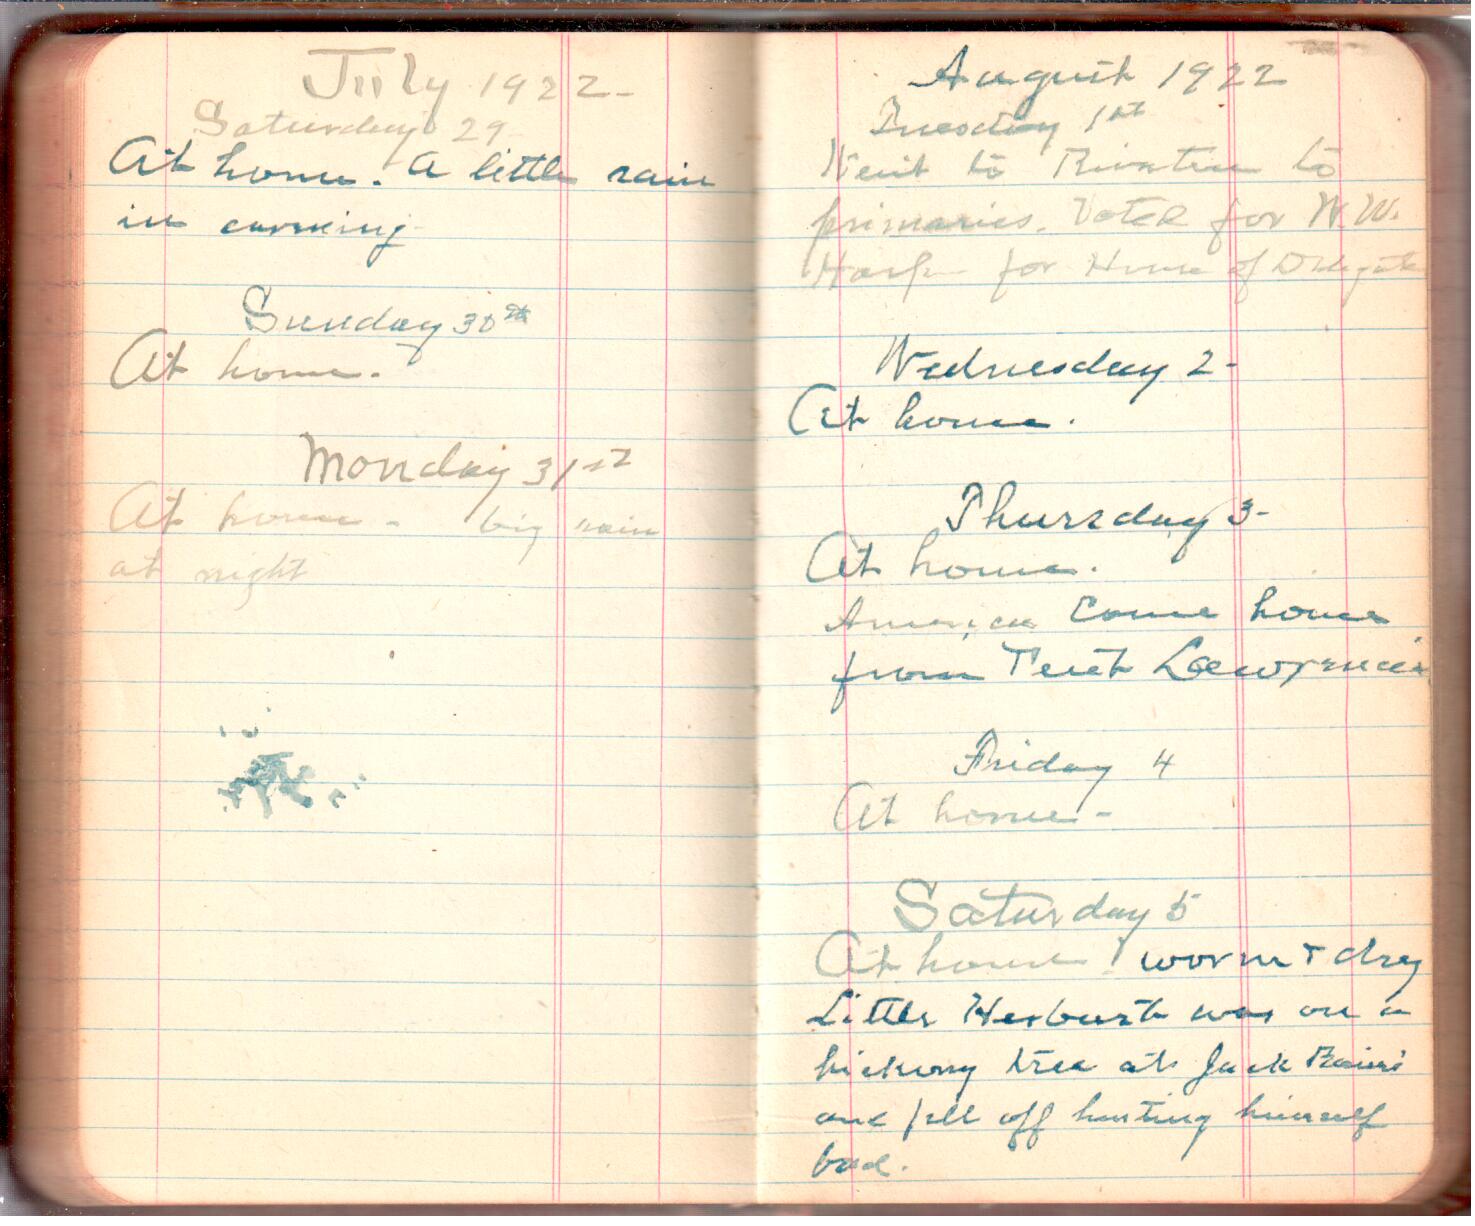 July 1922-
Saturday 29-
At home. A little rain
in evening
Sunday 30th
At home.
Monday 31st
At home - big rain
at night
August 1922
Tuesday 1st
Went to Riverton to
primaries. Voted for W. W.
for House of Delegate
Wednesday 2-
At home.
Thursday 3-
At home.
America Come home
from Tent
Friday 4
At home-
Saturday 5
At home! worm + dry
Little Herburt was on a
hickory tree at Jack
and fell off hurting himself
bad.